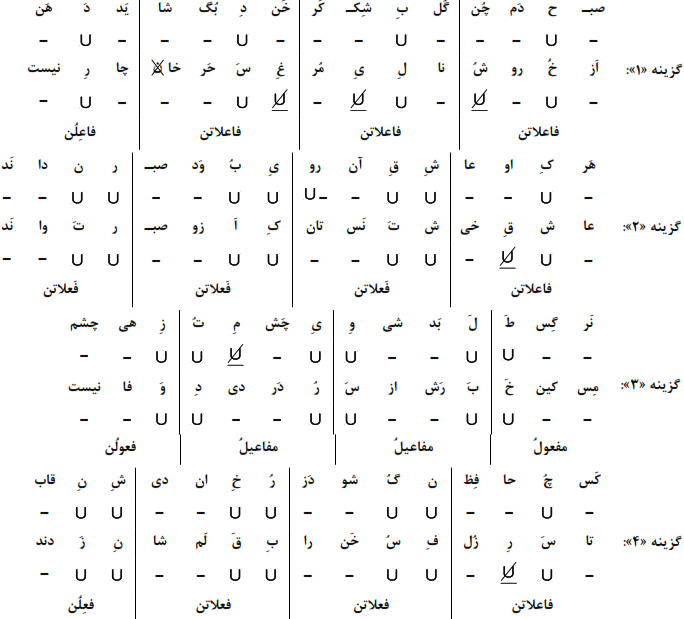 صبـ ح دَم چُن گُل بِ شِکـ کَر خَن دِ بُگ شا یَد دَ هَن
– U – – – U – – – U – – – U –
گزینه «۱»: اَز خُ رو شُ نا لِ یِ مُر غِ سَ حَر خا چا رِ نیست
– U – U – U U – U U – – – U –
فاعلاتن فاعلاتن فاعلاتن فاعِلُن
هَر کِ او عا شِ قِ آن رو یِ بُ وَد صبـ ر نَ دا نَد
– U – – U U – – U U U – – U U – –
گزینه «۲»: عا ش قِ خی ش تَ نَس تان کِ اَ زو صبـ ر تَ وا نَد
– U U – U U – – U U – – U U – –
فاعلاتن فَعلاتن فَعلاتن فَعلاتن
نَر گِس طَ لَ بَد شی وِ یِ چَش مِ تُ زِ هی چشم
– – U U – – U U – U U U – –
گزینه «۳»: مِس کین خَ بَ رَش از سَ رُ دَر دی دِ وَ فا نیست
– – U U – – U U – – U U – –
مفعولُ مفاعیلُ مفاعیلُ فعولُن
کَس چُ حا فِظ نَ گُ شو دَز رُ خِ ان دی شِ نِ قاب
– U – – U U – – U U – – U U –
گزینه «۴»: تا سَ رِ زُل فِ سُ خَن را بِ قَ لَم شا نِ زَ دند
– U U – U U – – U U – – U U –
فاعلاتن فعلاتن فعلاتن فَعِلُن